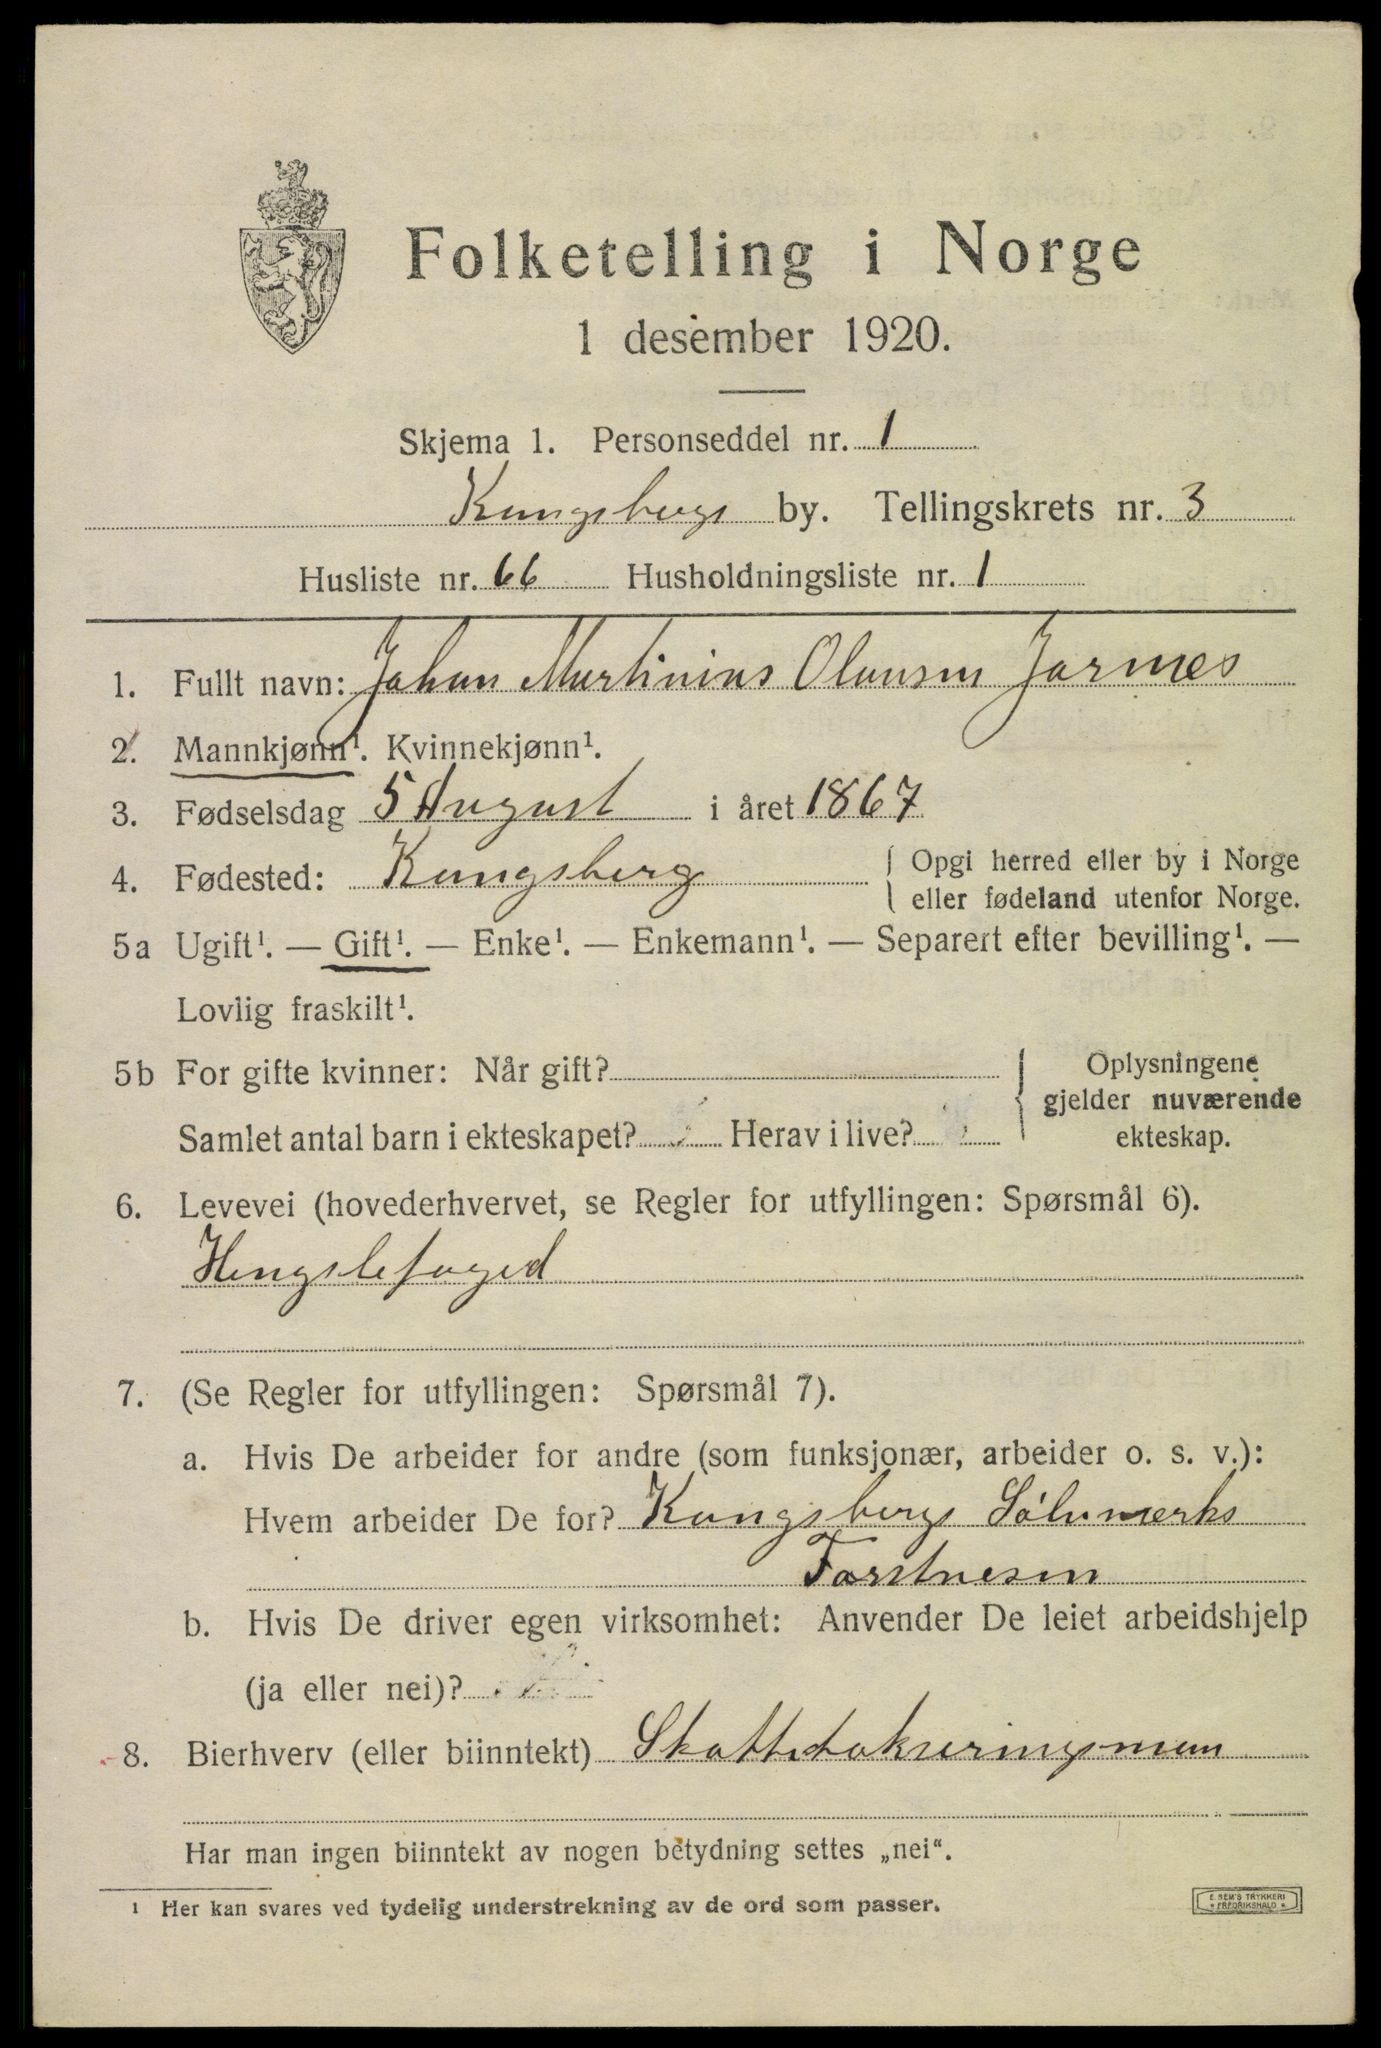 Folketelling i Norge
1 desember 1920.
Skjema 1. Personseddel nr. 1
Kongsbergs by. Tellingskrets nr. 3
Husliste nr. 66 Husholdningsliste nr. 1
1. Fullt navn: Johan Martinius Olausen Jarnes
2. Mannkjønn¹. Kvinnekjønn¹.
3. Fødselsdag 5 August i året 1867
4. Fødested: Kongsberg { Opgi herred eller by i Norge
eller fødeland utenfor Norge.
5a Ugift¹. — Gift¹. — Enke¹. — Enkemann¹. — Separert efter bevilling¹. —
Lovlig fraskilt¹.
5b For gifte kvinner: Når gift?
Samlet antal barn i ekteskapet? Herav i live?
{ Oplysningene
gjelder nuværende
ekteskap.
6. Levevei (hovederhvervet, se Regler for utfyllingen: Spørsmål 6).
Hengslefoged
7. (Se Regler for utfyllingen: Spørsmål 7).
a. Hvis De arbeider for andre (som funksjonær, arbeider o. s. v.):
Hvem arbeider De for? Kongsbergs Sølvverks
Forstvesen
b. Hvis De driver egen virksomhet: Anvender De leiet arbeidshjelp
(ja eller nei)?
8. Bierhverv (eller biinntekt) Skattetakseringsman
Har man ingen biinntekt av nogen betydning settes „nei“.
¹ Her kan svares ved tydelig understrekning av de ord som passer.
E. SEM'S TRYKKERI
* FREDRIKSHALD *